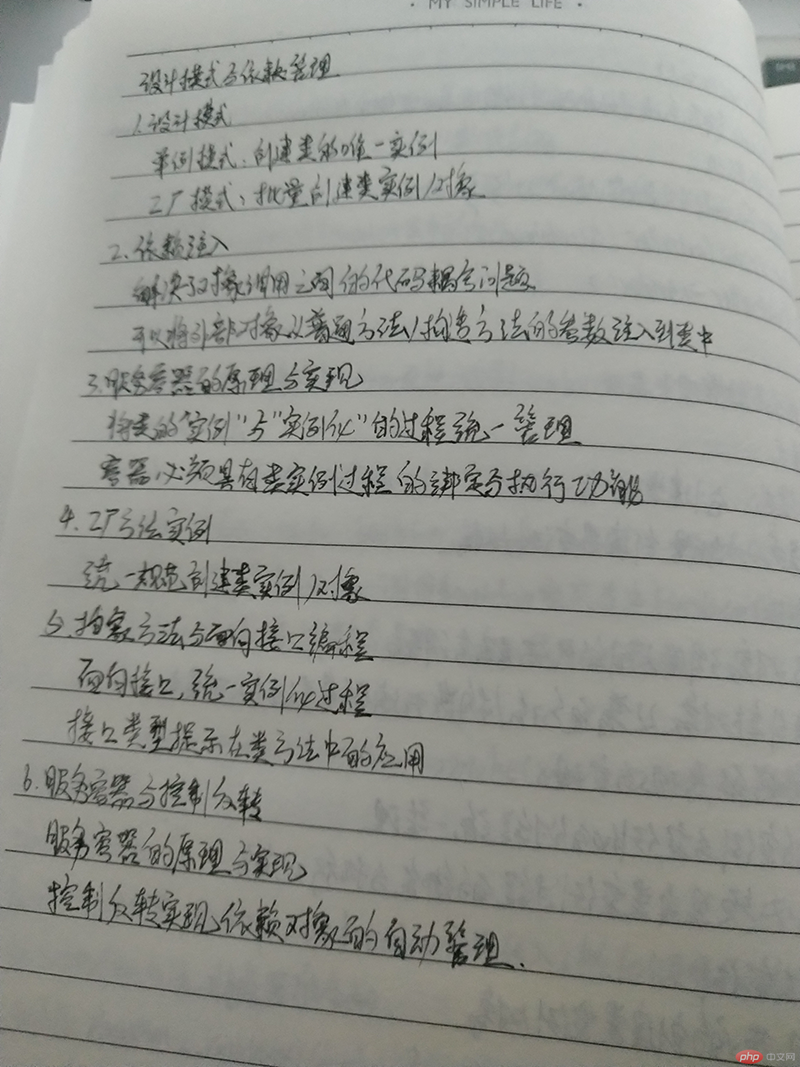 · MY SIMPLE LIFE ·
设计模式与依赖管理
1.设计模式
单例模式:创建类的唯一实例
工厂模式:批量创建类实例/对象
2.依赖注入
解决了对象调用之间的代码耦合问题
可以将外部对象以普通方法/构造方法的参数注入到类中
3.服务容器的原理与实现
将类的"实例"与"实例化"的过程统一管理
容器必须具有类实例过程的绑定与执行功能
4.工厂方法实例
统一规范创建类实例/对象
5.抽象方法与面向接口编程
面向接口,统一实例化过程
接口类型提示在类方法中的应用
6.服务容器与控制反转
服务容器的原理与实现
控制反转实现依赖对象的自动管理.
php 中文网